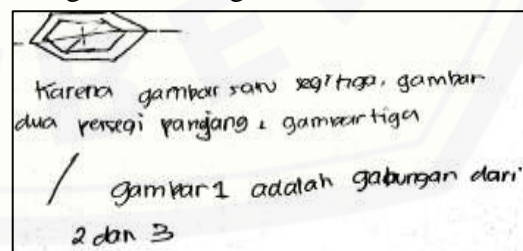 Karena gambar satu segitiga, gambar
dua persegi panjang, gambar tiga
gambar 1 adalah gabungan dari
2 dan 3